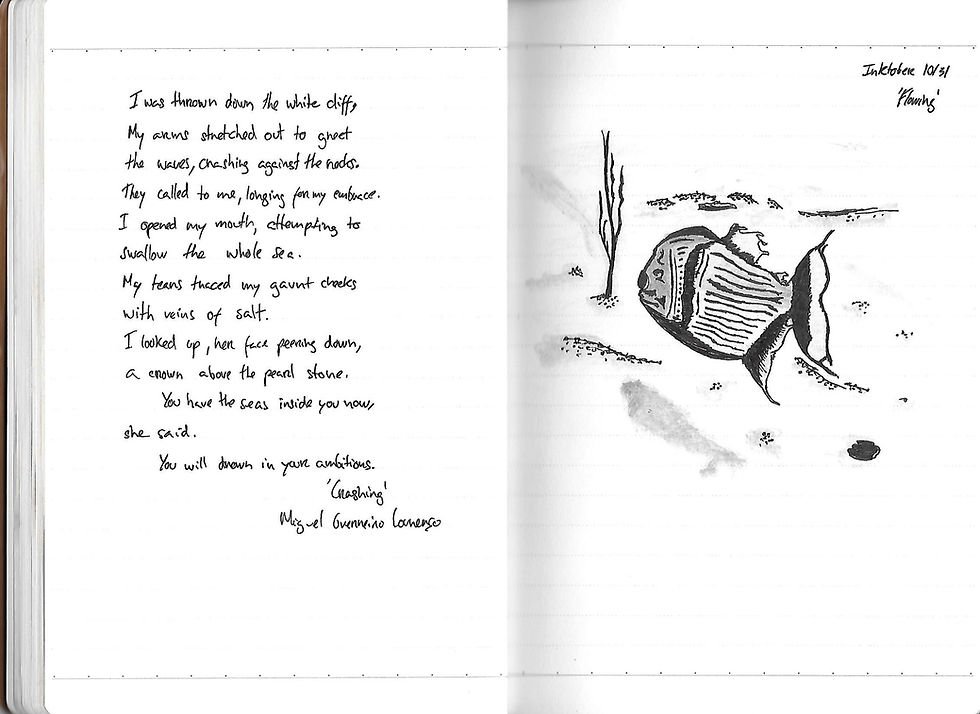 I was thrown down the white cliff,
My arms stretched out to greet
the waves, crashing against the rocks.
They called to me, longing for my embrace.
I opened my mouth, attempting to
swallow the whole sea.
My tears traced my gaunt cheeks
with veins of salt.
I looked up, her face peering down,
a crown above the pearl stone.
You have the seas inside you now,
she said.
You will drown in your ambitions.
'Crashing'
Miguel Guerreiro Lourenço
Inktober 10/31
'Flowing'